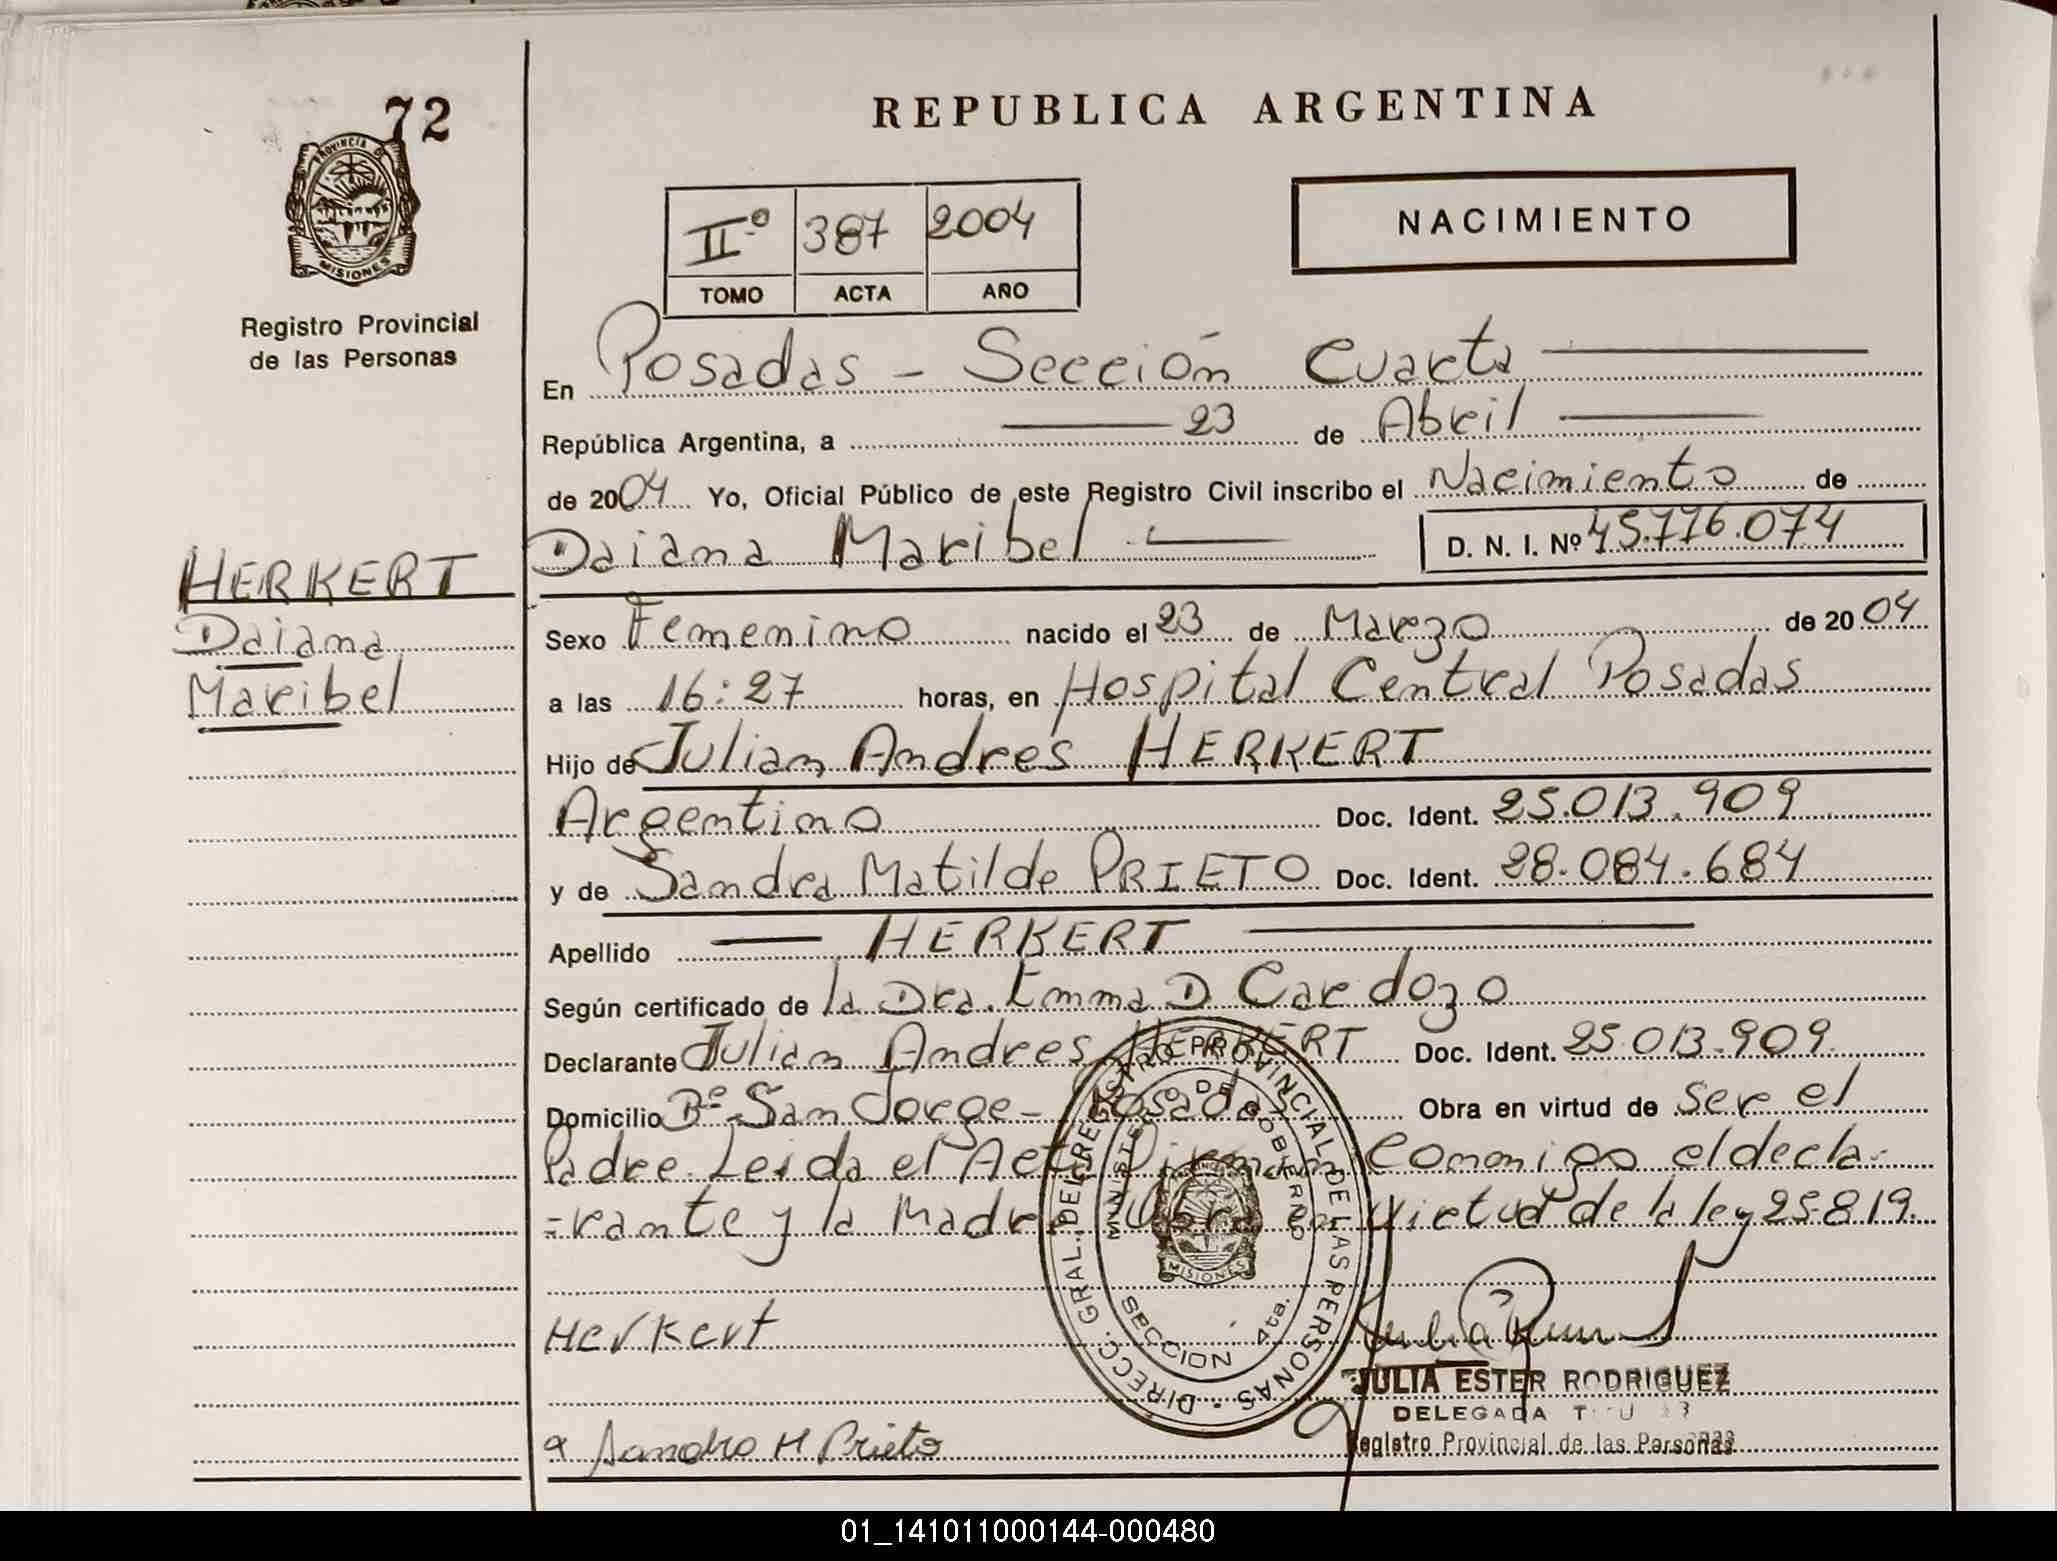 72
PROVINCIA DE
MISIONES
Registro Provincial
de las Personas
REPUBLICA ARGENTINA
IIº 387 2004
TOMO ACTA AÑO
NACIMIENTO
En Posadas - Sección Cuarta
República Argentina, a 23 de Abril
de 2004 Yo, Oficial Público de este Registro Civil inscribo el Nacimiento de
Daiana Maribel D. N. I. Nº 45.776.074
HERKERT
Daiana
Maribel
Sexo Femenino nacido el 23 de Marzo de 2004
a las 16:27 horas, en Hospital Central Posadas
Hijo de Julian Andres HERKERT
Argentino Doc. Ident. 25.013.909
y de Sandra Matilde PRIETO Doc. Ident. 28.084.684
Apellido HERKERT
Según certificado de la Dra. Emma D Cardozo
Declarante Julian Andres HERKERT Doc. Ident. 25.013.909.
Domicilio Bº San Jorge - Posadas Obra en virtud de ser el
Padre. Leida el Acta Firman Conmigo el decla-
=rante y la Madre Obra en virtud de la ley 25.819.
DIRECC. GRAL. DEL REGISTRO PROVINCIAL DE LAS PERSONAS
MINISTERIO DE GOBIERNO
MISIONES
SECCION 4ta.
Herkert
JULIA ESTER RODRIGUEZ
DELEGADA
Registro Provincial de las Personas
Sandra M Prieto
01_141011000144-000480